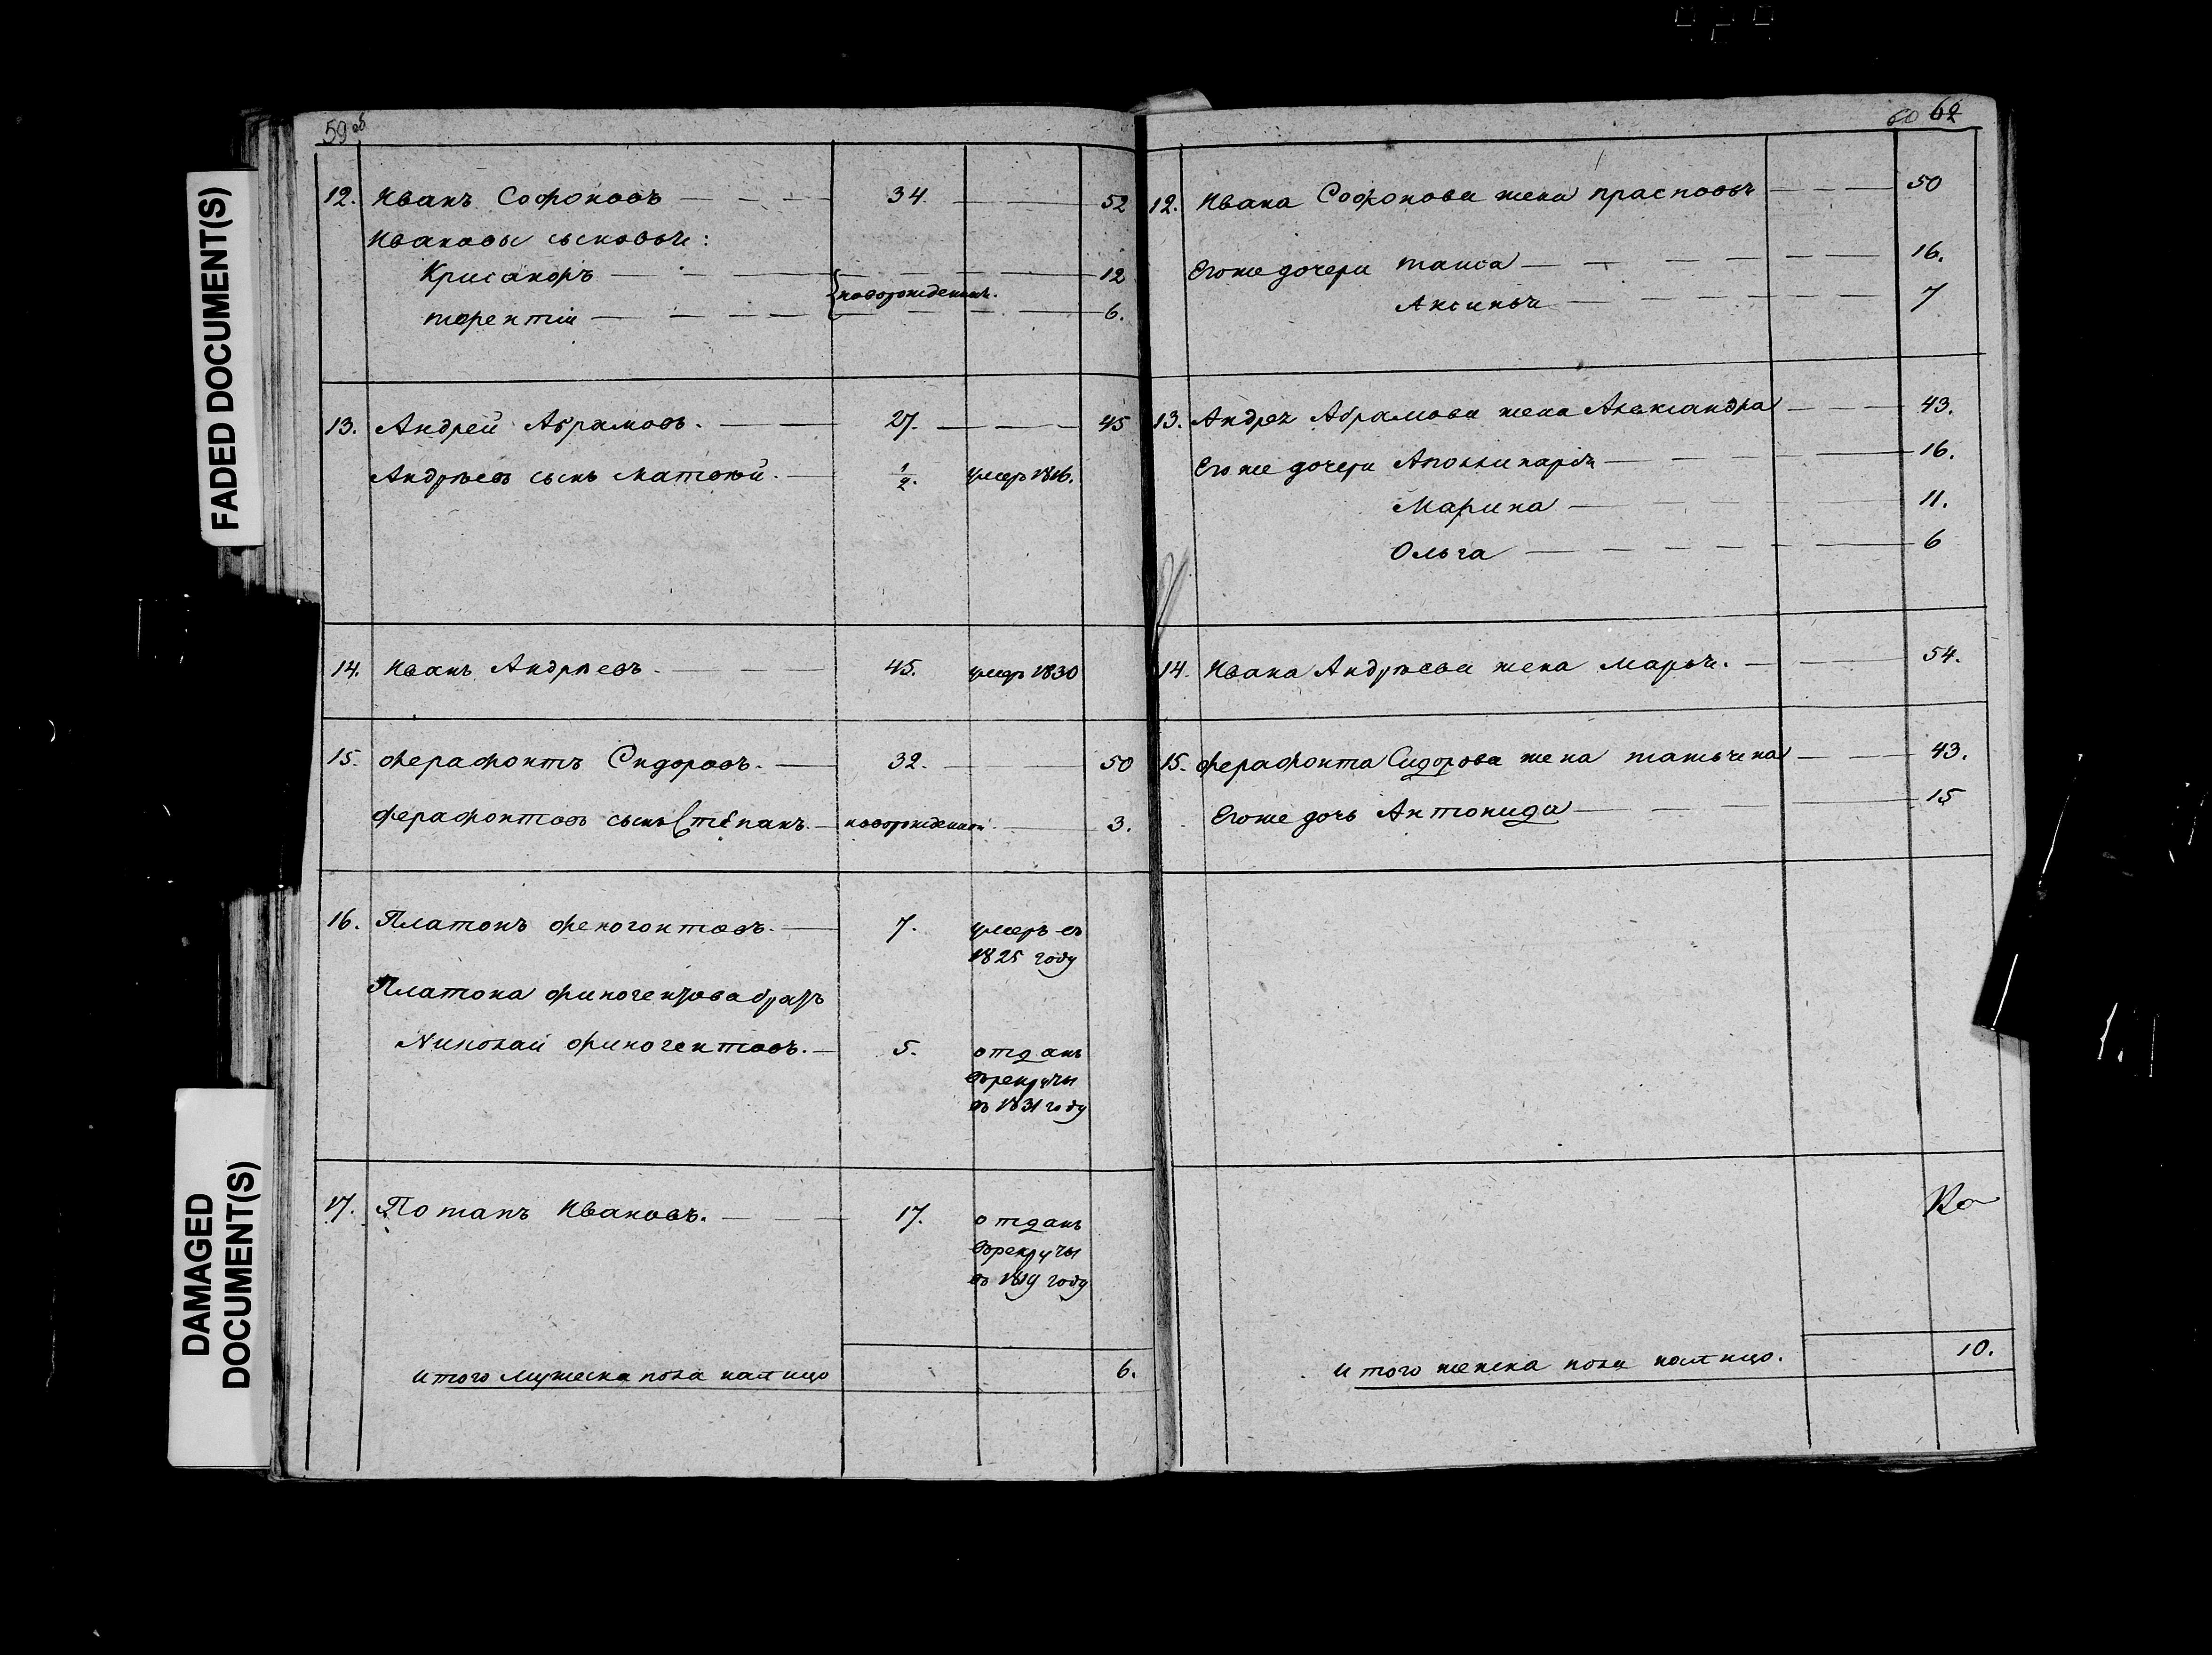 59 об
12. Иванъ Софоновъ 34. 52
Ивановы сыновья:
Крисанфъ 12
новорожденн.
терентій 6.
13. Андрей Абрамовъ. 27. 45
Андрѣевъ сынъ Матвѣй. 1/2. умеръ 1816.
14. Иванъ Андрѣевъ. 45. умеръ 1830
15. Ферафонтъ Сидоровъ. 32. 50
Ферафонтовъ сынъ Степанъ. новорожденной 3.
16. Платонъ Феногонтовъ. 7. умеръ въ
1825 году
Платона Финогентова братъ
Николай Финогентовъ. 5. отданъ
врекруты
въ 1831 году
17. Потапъ Ивановъ. 17. отданъ
врекруты
въ 1819 году
итого мужеска пола налицо 6.
60 62
12. Ивана Софонова жена прасковья 50
Егоже дочери таиса 16.
Аксинья 7
13. Андрея Абрамова жена Александра 43.
Егоже дочери Аполлинарія 16.
Марина 11.
Ольга 6
14. Ивана Андрѣева жена Марья. 54.
15. Ферафонта Сидорова жена татьяна 43.
Егоже дочь Антонида 15
итого женска пола налицо. 10.
FADED DOCUMENT(S)
DAMAGED
DOCUMENT(S)